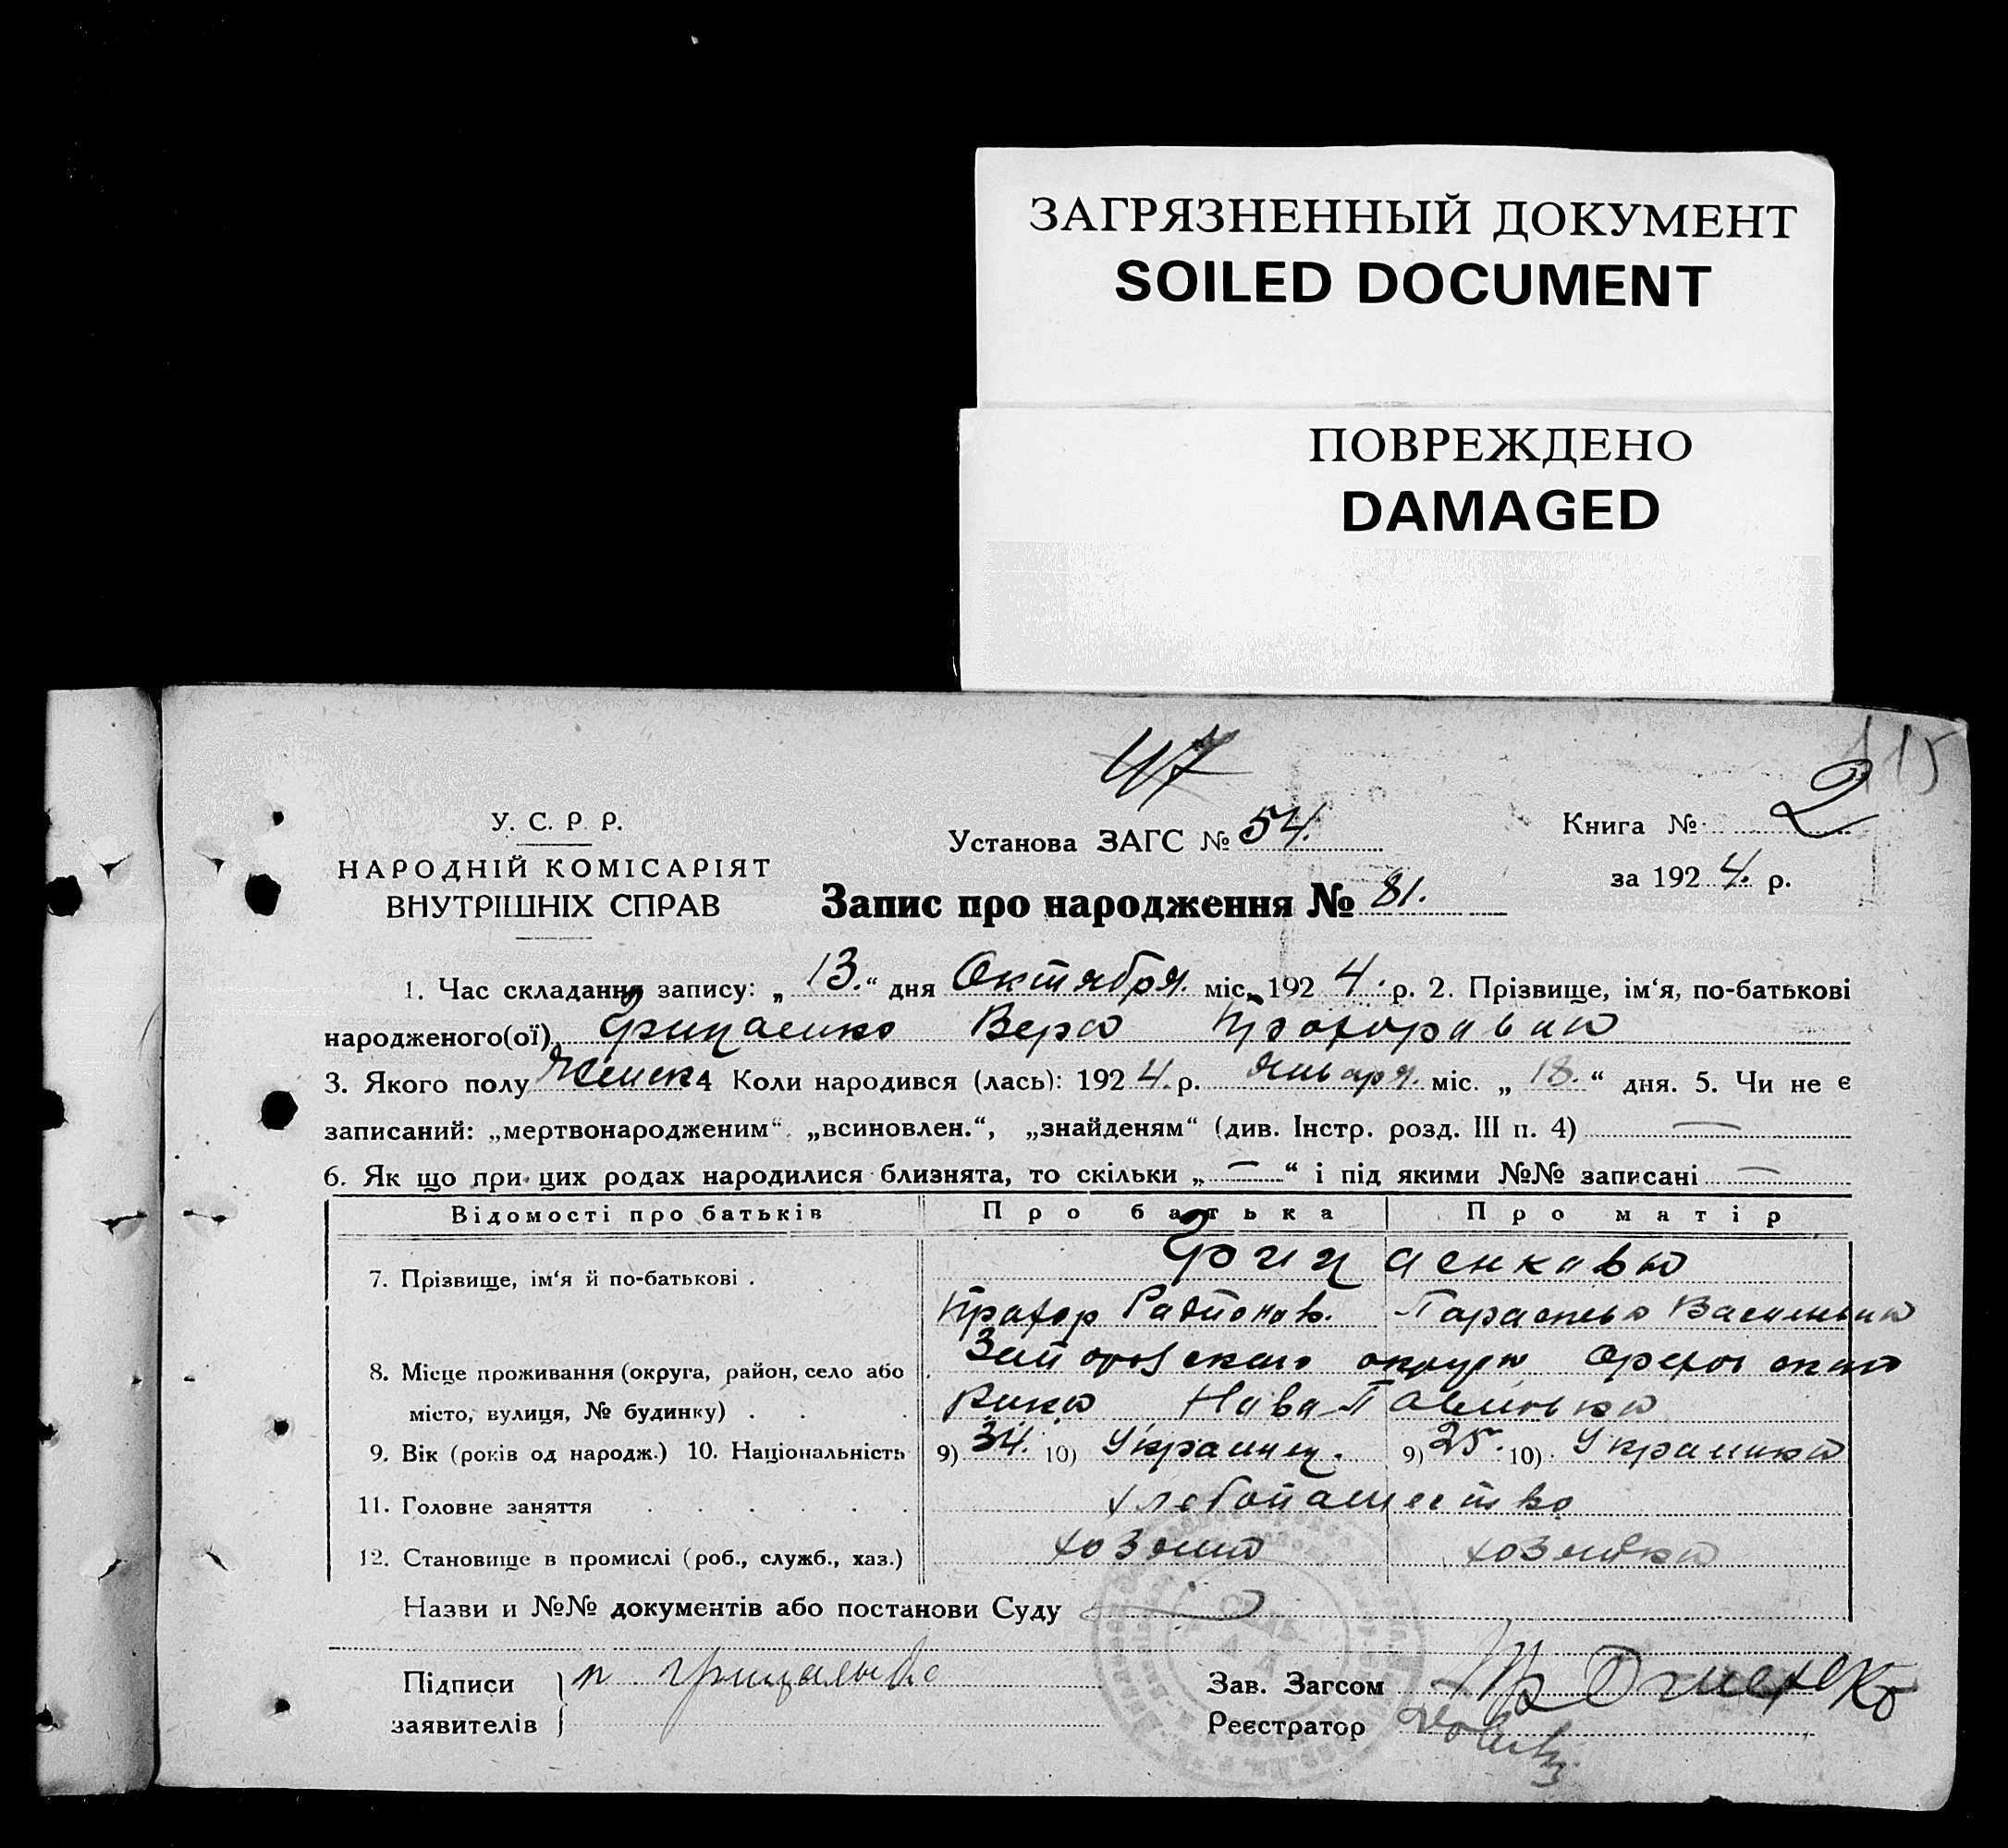 ЗАГРЯЗНЕННЫЙ ДОКУМЕНТ
SOILED DOCUMENT
ПОВРЕЖДЕНО
DAMAGED
47
115
У. С. Р. Р.
НАРОДНІЙ КОМІСАРІЯТ
ВНУТРІШНІХ СПРАВ
Установа ЗАГС № 54.
Книга № 2
за 1924. р.
Запис про народження № 81.
1. Час складання запису: „13.“ дня Октября. міс. 1924. р. 2. Прізвище, ім‘я, по-батькові
народженого(ої) Грицаенко Вера Прохоравна
3. Якого полу Женск 4 Коли народився (лась): 1924. р. Января. міс. „18.“ дня. 5. Чи не є
записаний: „мертвонародженим“ „всиновлен.“, „знайденям“ (див. Інстр. розд. III п. 4) —
6. Як що при цих родах народилися близнята, то скільки „—“ і під якими №№ записані —
Відомості про батьків Про батька Про матір
7. Прізвище, ім‘я й по-батькові . Грицаенкавы
Прахор Радионов. Параскева Васильвна
8. Місце проживання (округа, район, село або
місто, вулиця, № будинку) . . . Нава-Павловка
9. Вік (років од народж.) 10. Національність 9) 34. 10) Украинец. 9) 25. 10). Украинка
11. Головне заняття . . . . . . хлебопашество
12. Становище в промислі (роб., служб., хаз.) хозяин хозяйка
Назви и №№ документів або постанови Суду
Підписи
заявителів
Зав. Загсом
Реєстратор